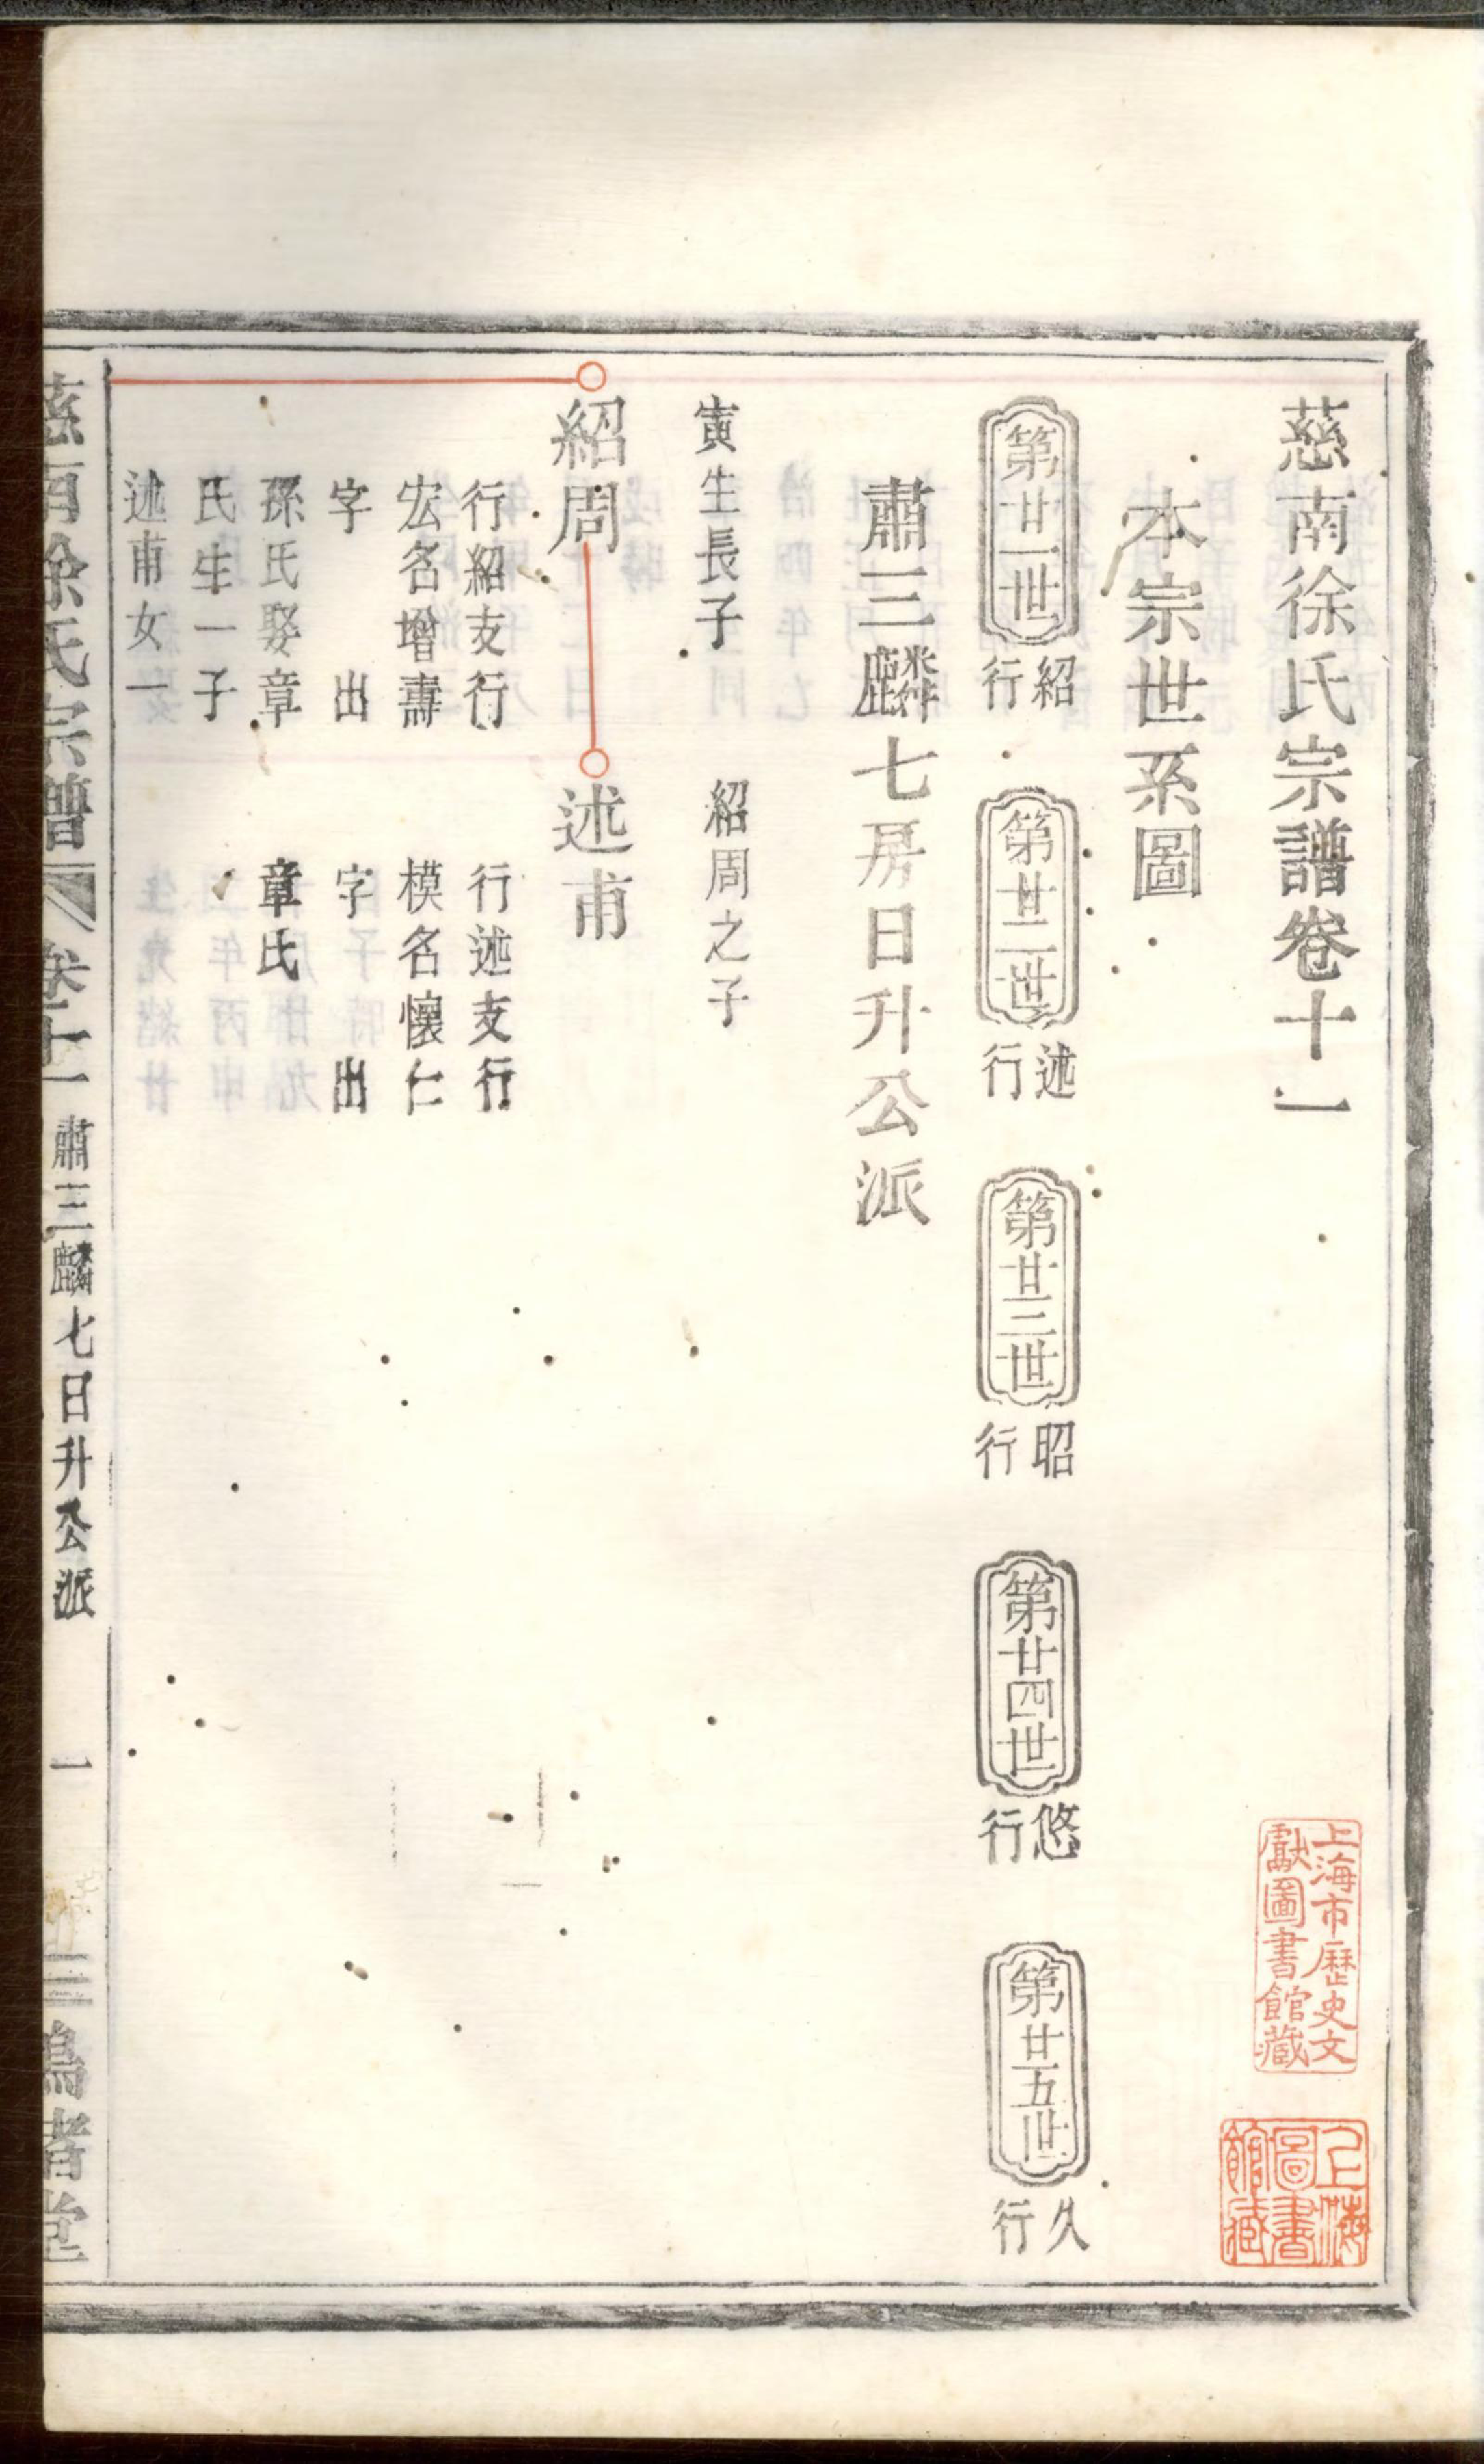 慈南徐氏宗譜卷十一
本宗世系圖
第廿一世
紹行
第廿二世
述行
第廿三世
昭行
第廿四世
悠行
第廿五世
久行
肅三麟七房日升公派
寅生長子
紹周之子
紹周
述甫
行紹支行
宏名增壽
字 出
孫氏娶章
氏生一子
述甫女一
行述支行
模名懷仁
字 出
章氏
慈南徐氏宗譜
卷十一
肅三麟七日升公派
一
上海市歷史文
獻圖書館藏
上海
圖書
館藏